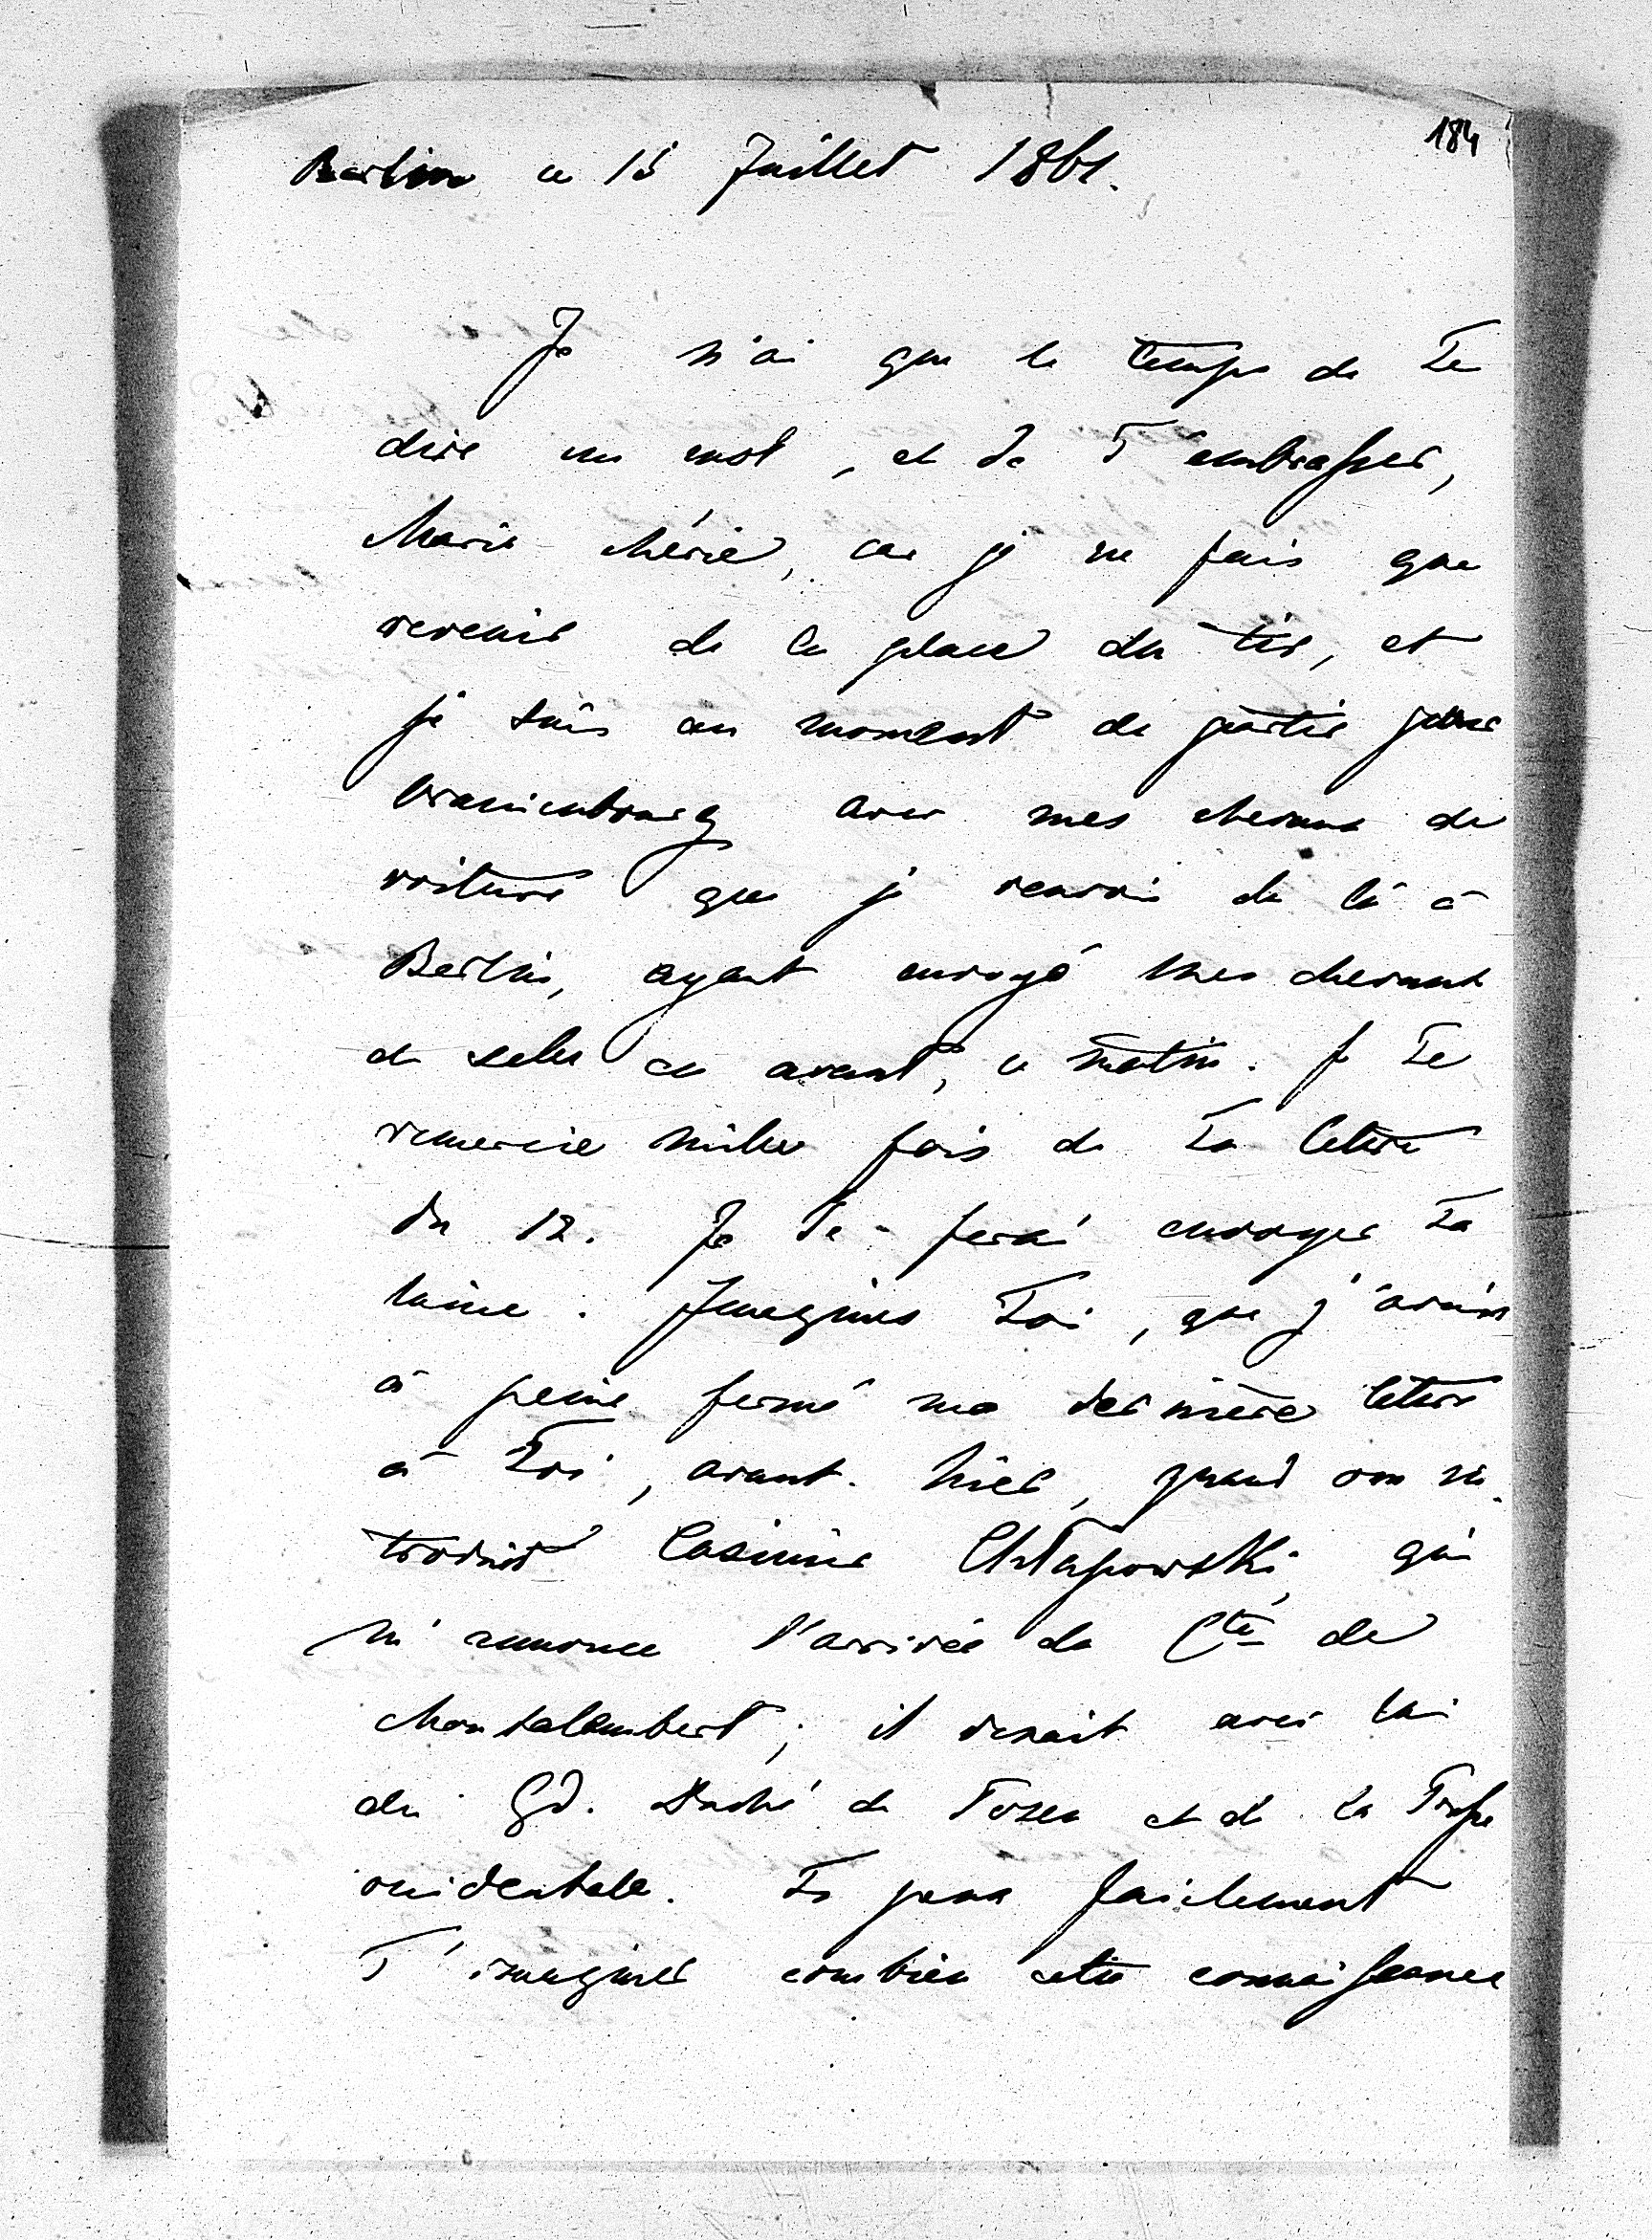 184
Berlin ce 15 Juillet 1861.
Je n'ai que le temps de Te
dire un mot, et de T'embrasser,
Marie chérie, car je ne fais que
revenir de la place du tir, et
je suis au moment de partir pour
Oranienbourg avec mes chevaux de
voiture que je renvoie de là à
Berlin, ayant envoyé mes chevaux
de selle en avant, ce matin. Je Te
remercie mille fois de Ta lettre
du 12. Je Te ferai envoyer Ta
laine. Imagines Toi, que j'avais
à peine fermé ma dernière lettre
à Toi, avant-hier, quand on in-
troduit Casimir Chłapowski, qui
m'annonce l'arrivée du Cte de
Montalembert; il venait avec lui
du Gd. Duché de Posen et de la Prusse
occidentale. Tu peux facilement
T'imaginer combien cette connaissance